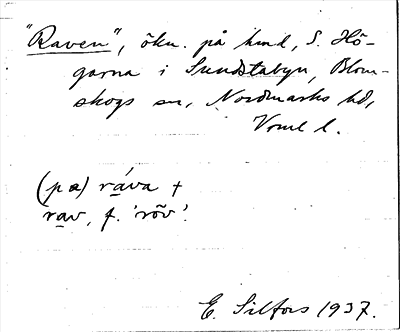 "Raven", ökn. på hmd, S. Hö-
garna i Sundstabyn, Blom-
skogs sn, Nordmarks hd,
Vrml l.
(pæ) ráva +
rav, f. 'röv'.
E. Silfors 1937.